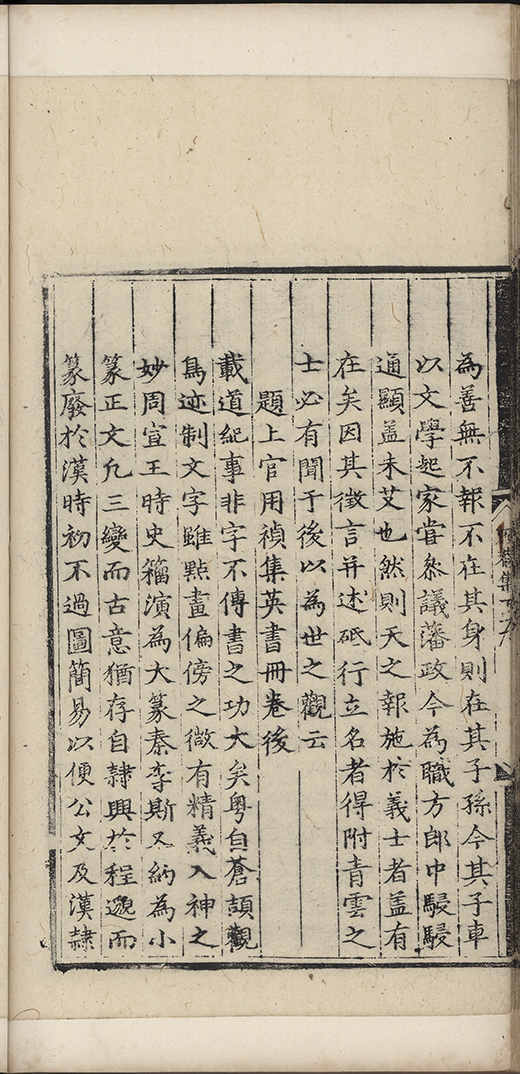 為善無不報不在其身則在其子孫今其子車
以文學起家甞叅議藩政今為職方郎中駸駸
通顯盖未艾也然則天之報施於義士者盖有
在矣因其徵言并述砥行立名者得附青雲之
士必有聞于後以為世之觀云
題上官用禎集英書冊卷後
載道紀事非字不傳書之功大矣粤自蒼頡觀
鳥迹制文字雖㸃畫偏傍之微有精義入神之
妙周宣王時史籀演為大篆秦李斯又約為小
篆正文凡三變而古意猶存自隷興於程邈而
篆廢於漢時初不過圖簡易以便公文及漢隷